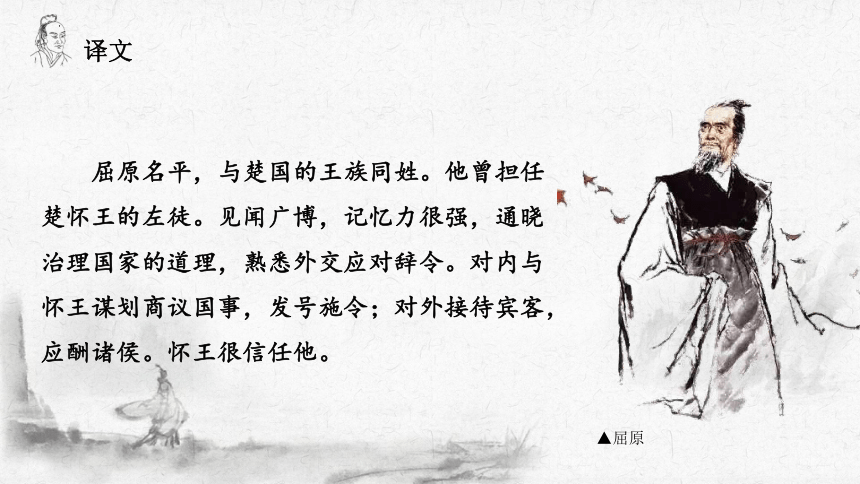 译文
屈原名平，与楚国的王族同姓。他曾担任
楚怀王的左徒。见闻广博，记忆力很强，通晓
治理国家的道理，熟悉外交应对辞令。对内与
怀王谋划商议国事，发号施令；对外接待宾客，
应酬诸侯。怀王很信任他。
▲屈原